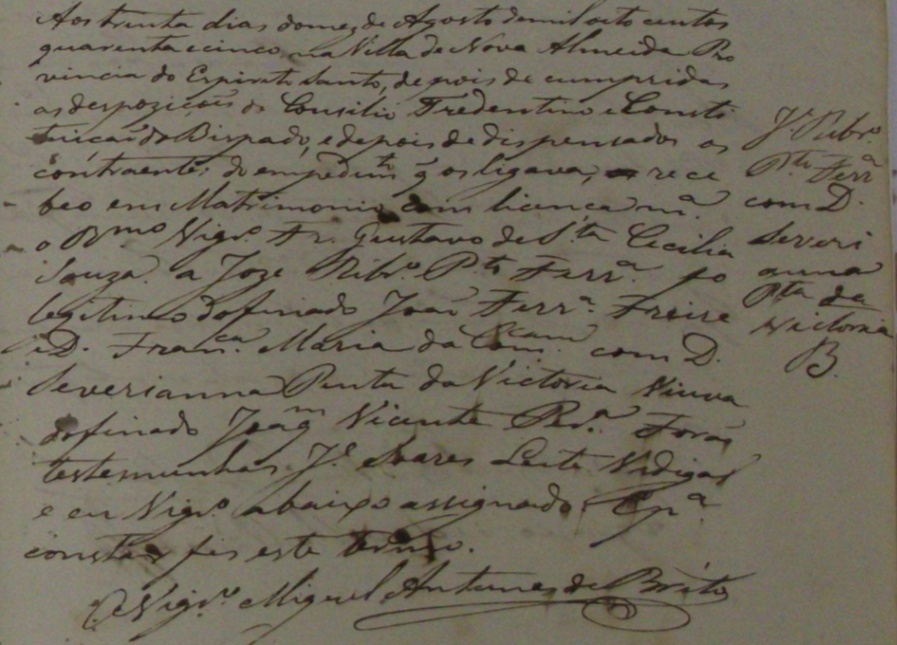 Aos trinta dias do mez de Agosto de mil oito centos
quarenta e cinco na Villa de Nova Almeida Pro
vincia do Espirito Santo, depois de cumpridas
as despozições do Consilio Tredentino e Consti
tuicaõ do Bispado, e depois de dispensados os
contraentes do empedimto q os ligava, rece
beo em Matrimonio com licença mª
o Rmo Vigrº Fr. Gustavo de Sta Cecilia
Souza a Joze Ribrº Pto Ferrª fo
legitimo do finado João Ferrª Freire
e D. Franca Maria da com D.
Severianna Pinta da Victoria Viuva
do finado Joaqm Vicente Perª Foraõ
testemunhas Jº Soares Leite Vidigal
e eu Vigrº abaixo assignado. E pª
constar fis este termo.
O Vigrº Miguel Antunes de Brito
Jº Ribrº
Pto Ferrª
com D.
Severi
anna
Pta da
Victoria
B.